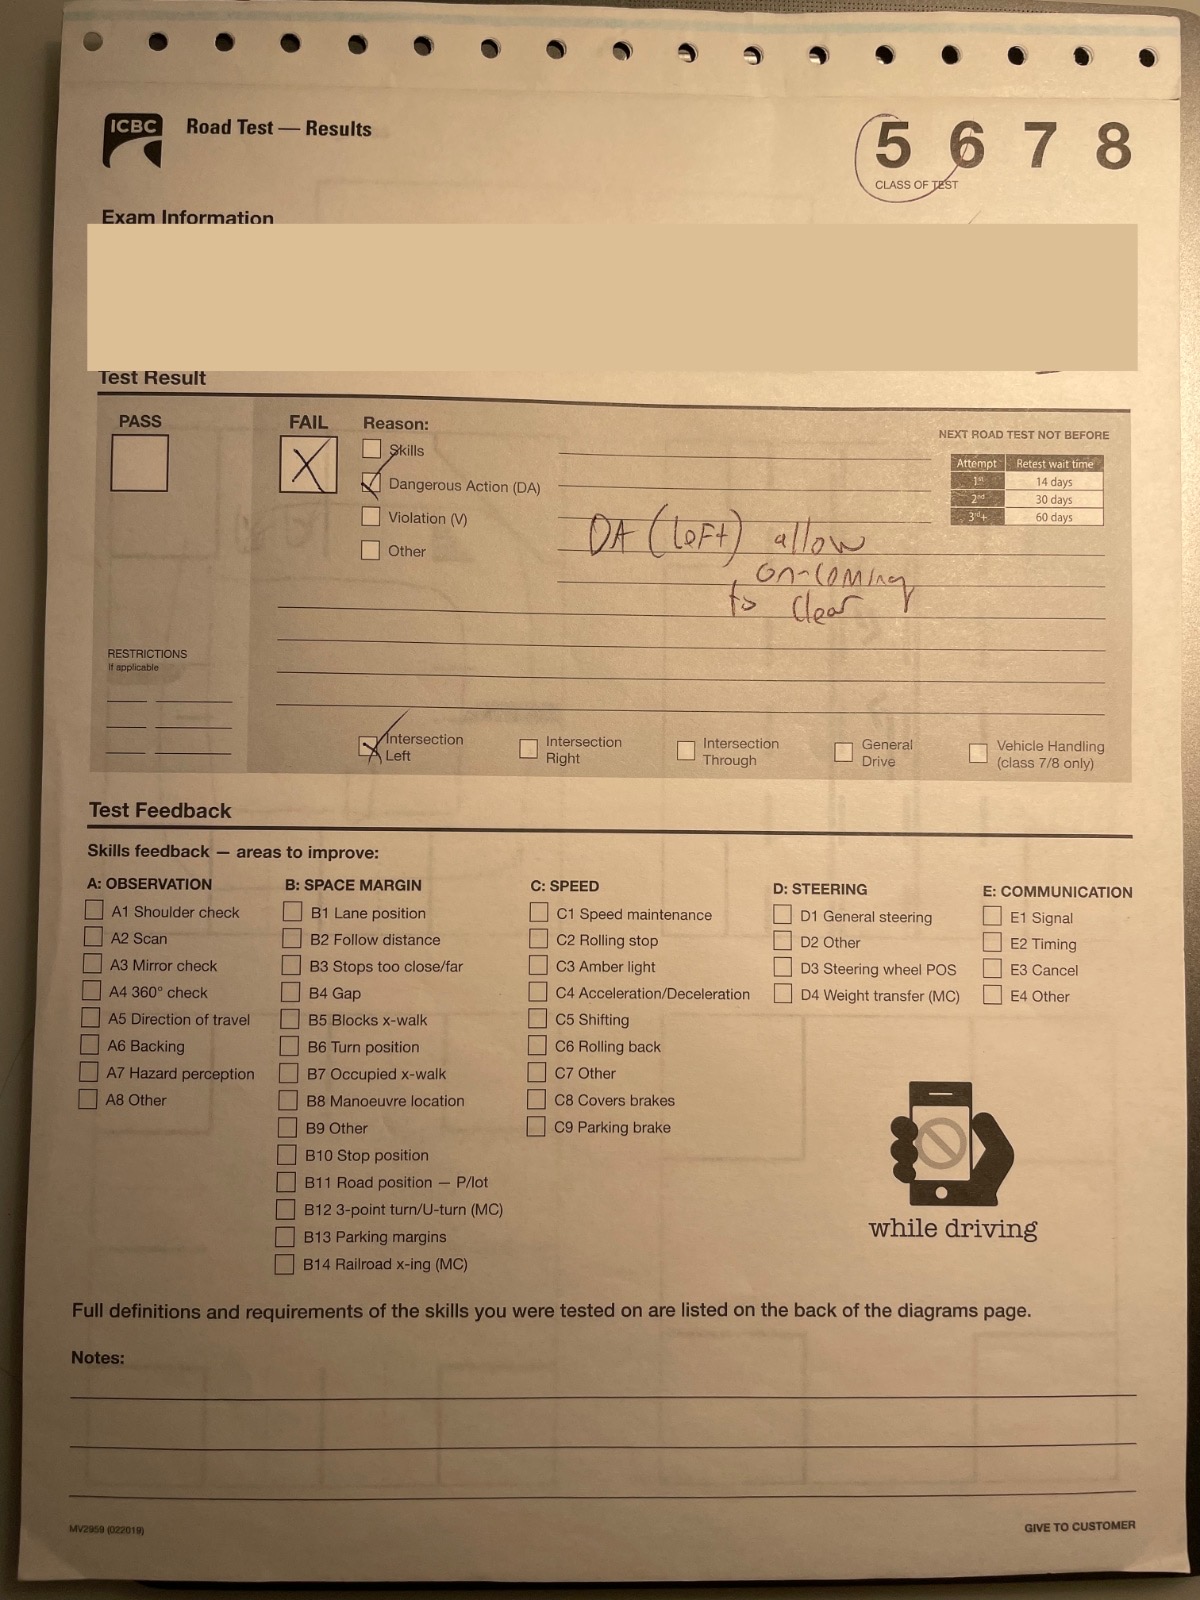 ICBC Road Test — Results
5 6 7 8
CLASS OF TEST
Exam Information
Test Result
PASS
FAIL
Reason:
Skills
Dangerous Action (DA)
Violation (V)
Other
NEXT ROAD TEST NOT BEFORE
Attempt Retest wait time
1st 14 days
2nd 30 days
3rd+ 60 days
DA (Left) allow
on-coming
to clear
RESTRICTIONS
If applicable
Intersection Left
Intersection Right
Intersection Through
General Drive
Vehicle Handling (class 7/8 only)
Test Feedback
Skills feedback — areas to improve:
A: OBSERVATION
A1 Shoulder check
A2 Scan
A3 Mirror check
A4 360° check
A5 Direction of travel
A6 Backing
A7 Hazard perception
A8 Other
B: SPACE MARGIN
B1 Lane position
B2 Follow distance
B3 Stops too close/far
B4 Gap
B5 Blocks x-walk
B6 Turn position
B7 Occupied x-walk
B8 Manoeuvre location
B9 Other
B10 Stop position
B11 Road position — P/lot
B12 3-point turn/U-turn (MC)
B13 Parking margins
B14 Railroad x-ing (MC)
C: SPEED
C1 Speed maintenance
C2 Rolling stop
C3 Amber light
C4 Acceleration/Deceleration
C5 Shifting
C6 Rolling back
C7 Other
C8 Covers brakes
C9 Parking brake
D: STEERING
D1 General steering
D2 Other
D3 Steering wheel POS
D4 Weight transfer (MC)
E: COMMUNICATION
E1 Signal
E2 Timing
E3 Cancel
E4 Other
while driving
Full definitions and requirements of the skills you were tested on are listed on the back of the diagrams page.
Notes:
MV2959 (022019)
GIVE TO CUSTOMER